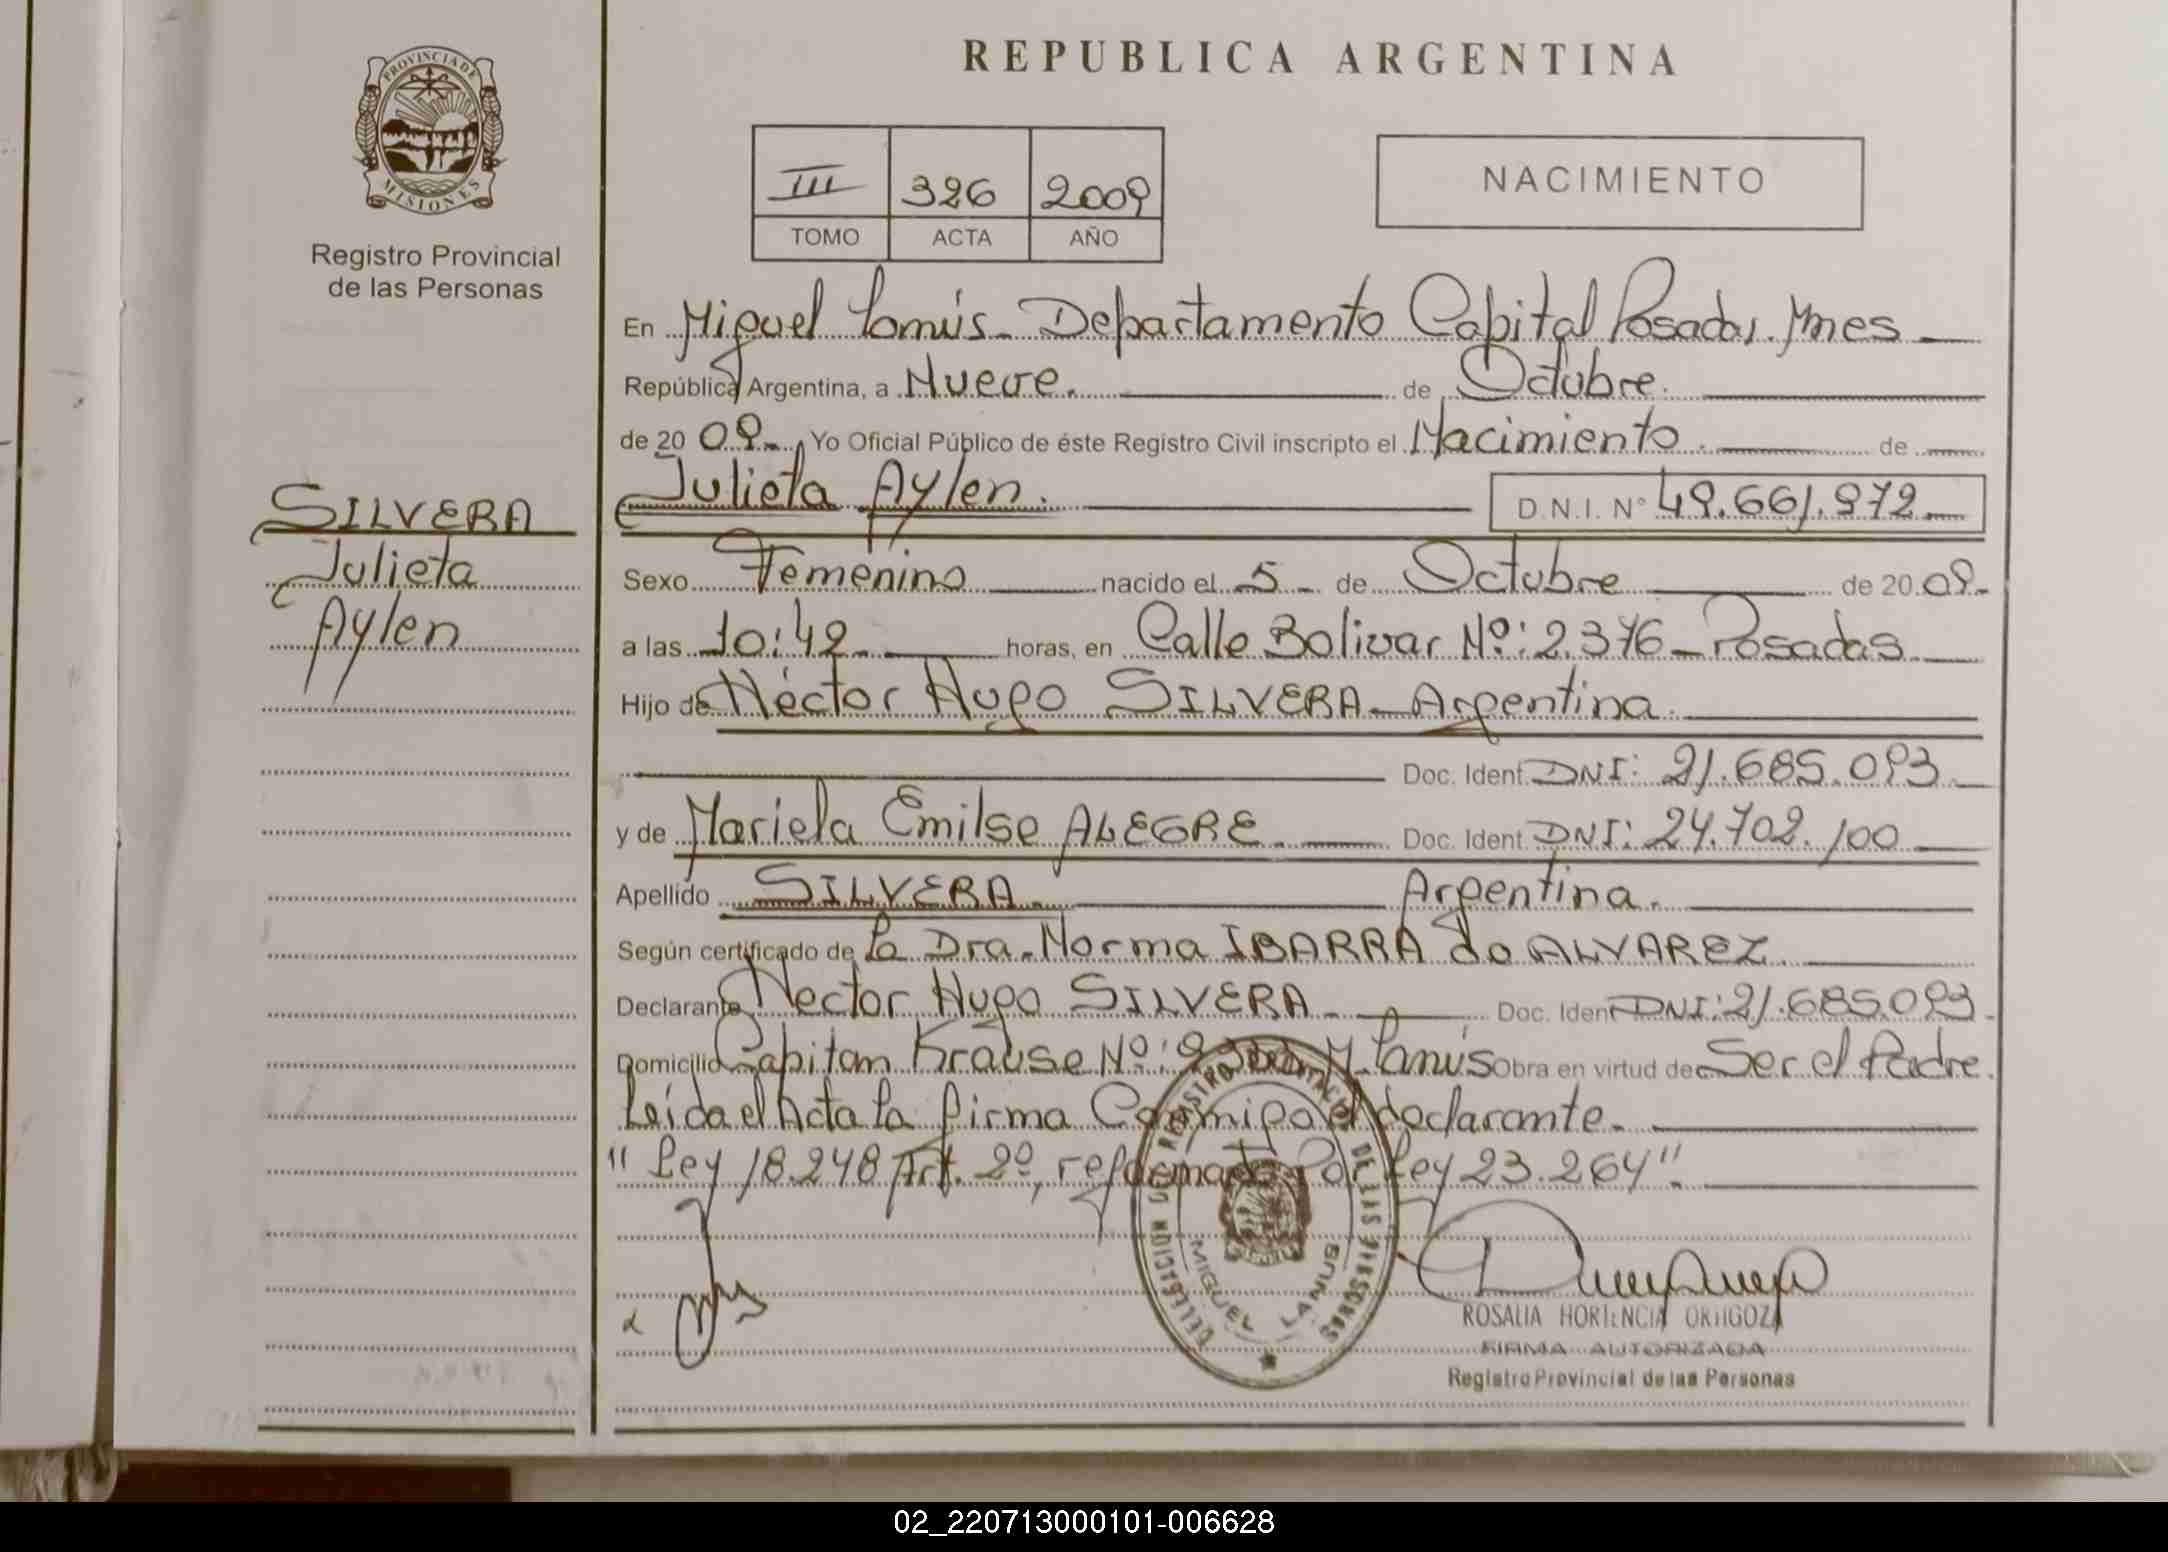 REPUBLICA ARGENTINA
PROVINCIA DE MISIONES
Registro Provincial
de las Personas
III 326 2009
TOMO ACTA AÑO
NACIMIENTO
En Miguel Lanús - Departamento Capital Posadas. Mnes
República Argentina, a Nueve. de Octubre.
de 20 09 - Yo Oficial Público de éste Registro Civil inscripto el Nacimiento. de
Julieta Aylen. D.N.I. N° 49.661.972
SILVERA
Julieta
Aylen
Sexo Femenino nacido el 5 - de Octubre de 20 09 -
a las 10:42 horas, en Calle Bolivar Nº: 2.376 - Posadas
Hijo de Héctor Hugo SILVERA - Argentina.
Doc. Ident. DNI: 21.685.093
y de Mariela Emilse ALEGRE. Doc. Ident. DNI: 24.702.100
Apellido SILVERA. Argentina.
Según certificado de La Dra. Norma IBARRA de ALVAREZ.
Declarante Hector Hugo SILVERA - Doc. Ident. DNI: 21.685.093
Domicilio Capitan Krause Nº: M. Lanús Obra en virtud de Ser el Padre
Leída el Acta la firma Conmigo el declarante.
"Ley 18.248 Art. 2º, reformado Por Ley 23.264".
DELEGACION REGISTRO DE LAS PERSONAS
MIGUEL LANUS
ROSALIA HORTENCIA ORTIGOZA
FIRMA AUTORIZADA
Registro Provincial de las Personas
02_220713000101-006628